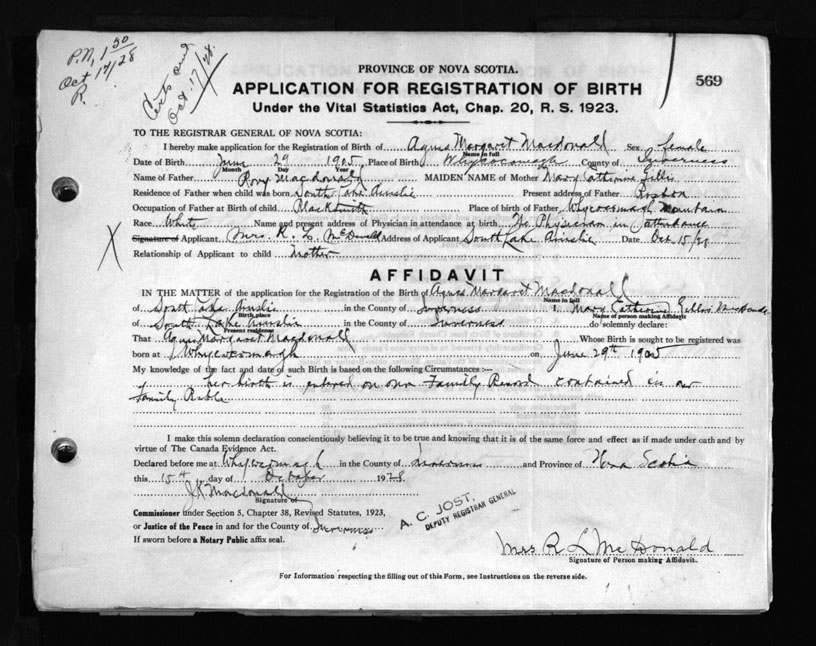 P.N. 1 50
Oct 17/28
R.
Certs and
Oct. 17/28.
569
PROVINCE OF NOVA SCOTIA.
APPLICATION FOR REGISTRATION OF BIRTH
Under the Vital Statistics Act, Chap. 20, R. S. 1923.
TO THE REGISTRAR GENERAL OF NOVA SCOTIA:
I hereby make application for the Registration of Birth of Agnes Margaret Macdonald Sex female
Name in full
Date of Birth June 29 1905, Place of Birth Whycocomagh County of Inverness
Month Day Year
Name of Father Rory Macdonald MAIDEN NAME of Mother Mary Catherine Gillis
Residence of Father when child was born South Lake Ainslie Present address of Father Boston
Occupation of Father at Birth of child Blacksmith Place of birth of Father Whycocomagh Mountain
Race White Name and present address of Physician in attendance at birth No Physician in attendance
Signature of Applicant Mrs. R. L. McDonald Address of Applicant South Lake Ainslie Date Oct 15/28
Relationship of Applicant to child Mother
AFFIDAVIT
IN THE MATTER of the application for the Registration of the Birth of Agnes Margaret Macdonald
Name in full
of South Lake Ainslie in the County of Inverness I, Mary Catherine Gillis Macdonald
Birth place Name of person making Affidavit
of South Lake Ainslie in the County of Inverness do solemnly declare:
Present residence
That Agnes Margaret Macdonald Whose Birth is sought to be registered was
born at Whycocomagh on June 29th 1905
My knowledge of the fact and date of such Birth is based on the following Circumstances :—
her birth is entered on our Family Record contained in our
family Bible
I make this solemn declaration conscientiously believing it to be true and knowing that it is of the same force and effect as if made under oath and by
virtue of The Canada Evidence Act.
Declared before me at Whycocomagh in the County of Inverness and Province of Nova Scotia
this 15th day of October 1928
J. Macdonald
Signature of
Commissioner under Section 5, Chapter 38, Revised Statutes, 1923,
or Justice of the Peace in and for the County of Inverness
If sworn before a Notary Public affix seal.
A. C. JOST,
DEPUTY REGISTRAR GENERAL
Mrs R L McDonald
Signature of Person making Affidavit.
For Information respecting the filling out of this Form, see Instructions on the reverse side.